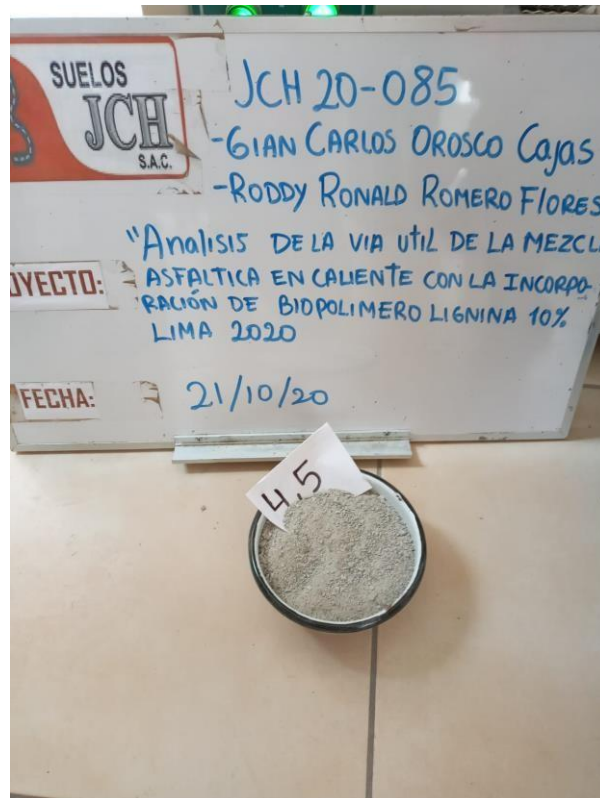 SUELOS
JCH
S.A.C.
JCH 20-085
-GIAN CARLOS OROSCO Cajas
-RODDY RONALD ROMERO FLORES
"Analisis DE LA VIA UTIL DE LA MEZCL
OYECTO:
ASFALTICA EN CALIENTE CON LA INCORPO-
RACIÓN DE BIOPOLIMERO LIGNINA 10%
LIMA 2020
FECHA:
21/10/20
4.5